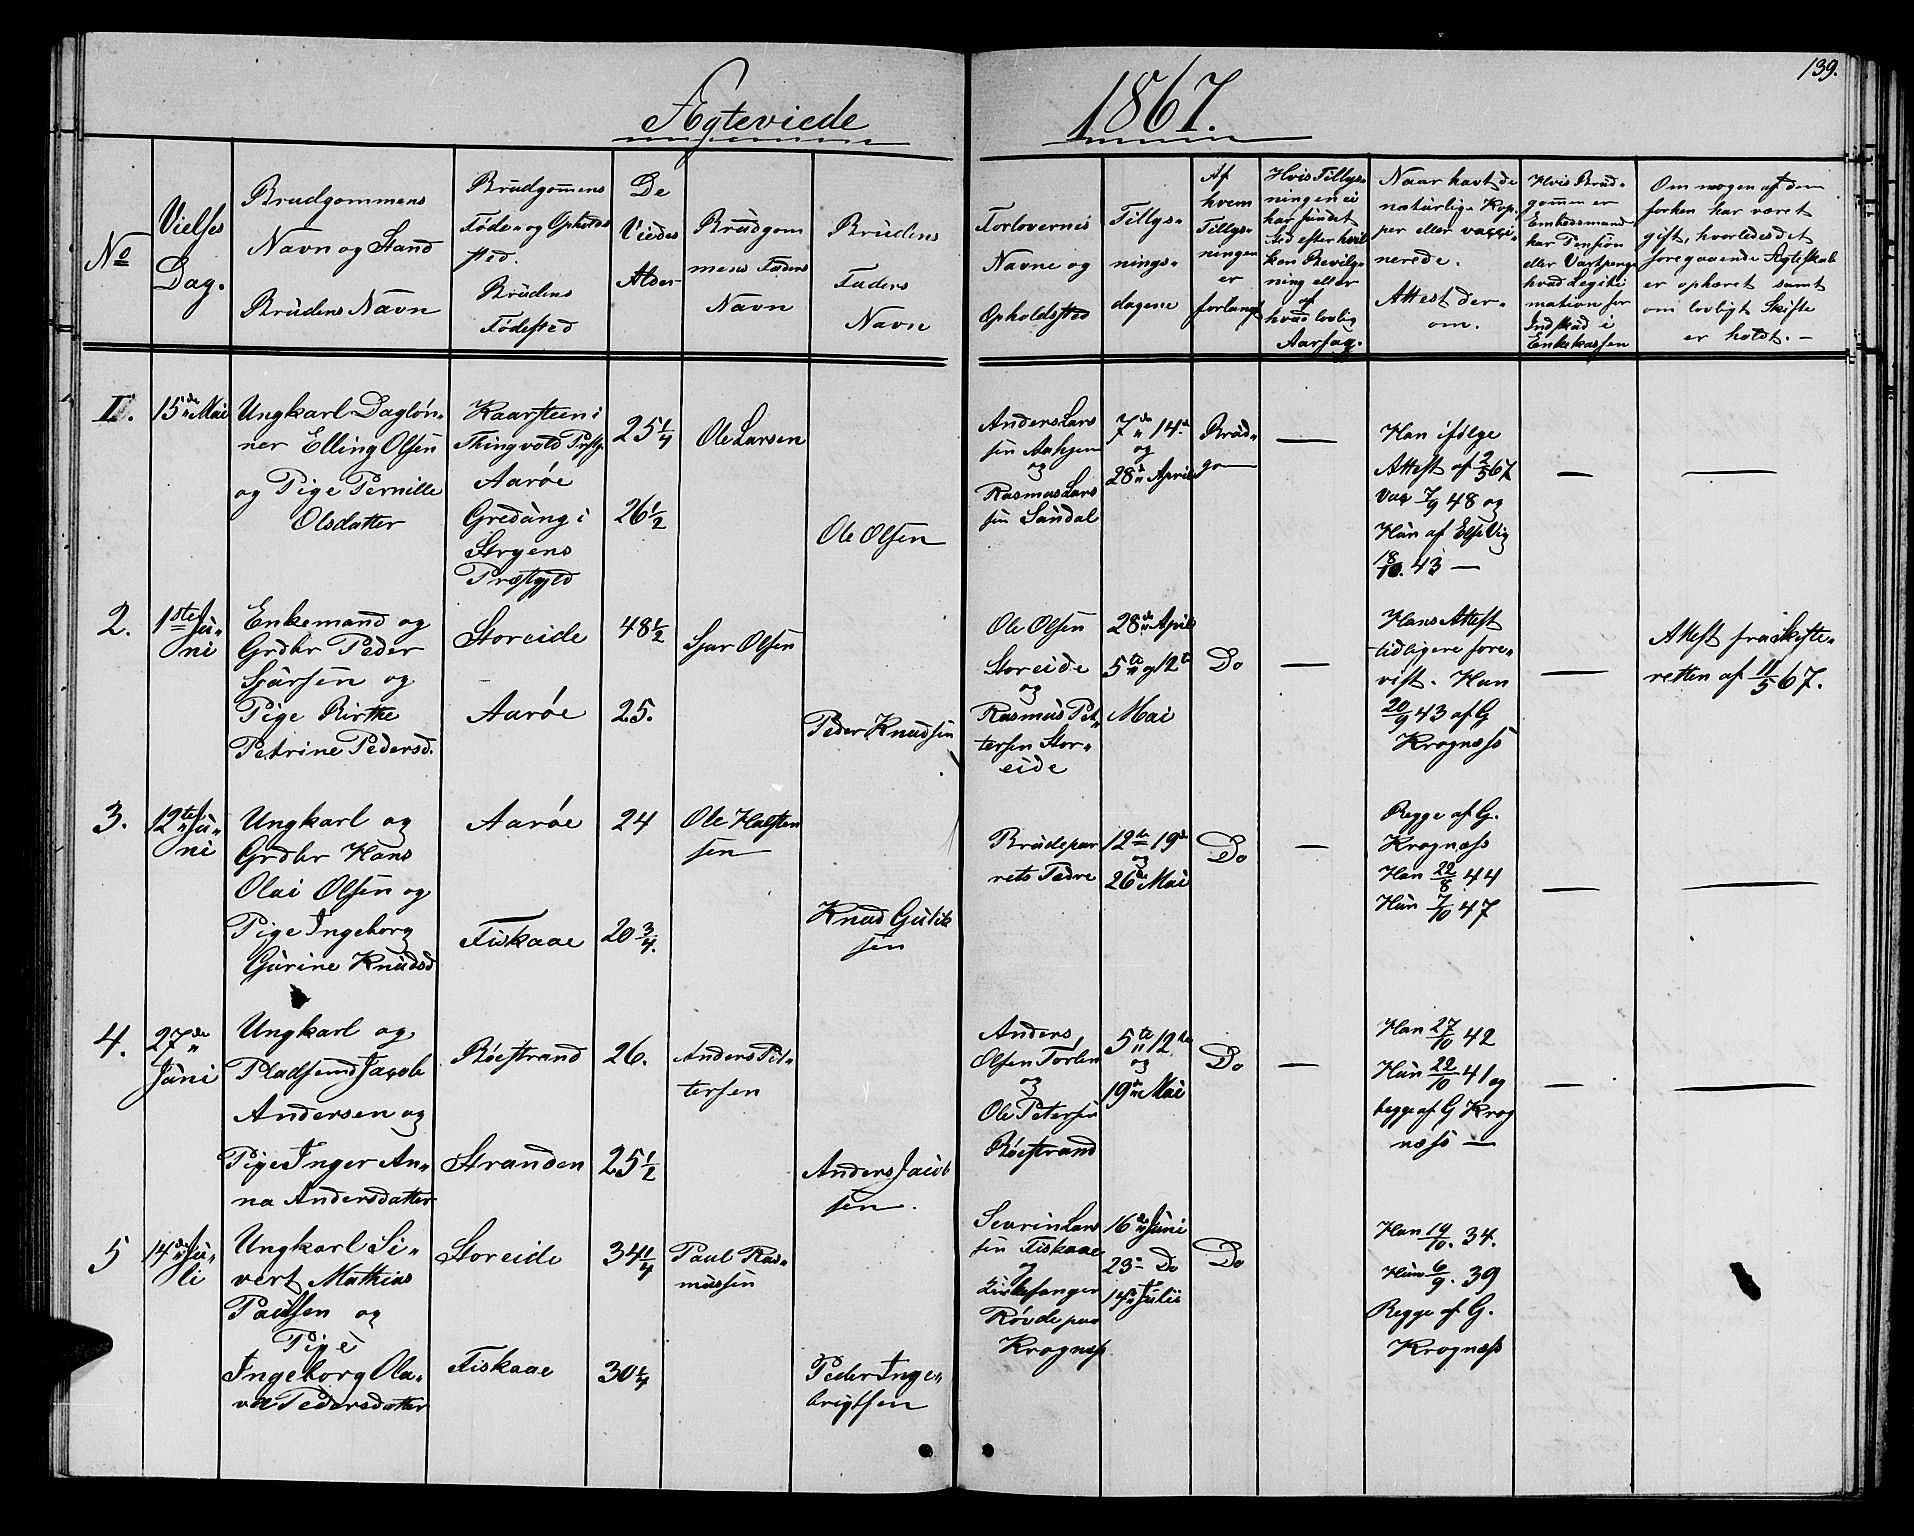 139.
Ægteviede 1867.
No
Vielses
Dag.
Brudgommens
Navn og Stand
Brudens Navn
Brudgommens
Føde- og Opholds
sted.
Brudens
Fødested
De
Viedes
Alder
Brudgom
mens Faders
Navn
Brudens
Faders
Navn
Forlovernes
Navne og
Opholdssted
Tillys-
nings-
dagene
Af
hvem
Tillys-
ningen
er
forlangt
Hvis Tillys-
ningen ei
har fundet
sted efter hvil
ken Bevilg-
ning eller
af
hvad lovlig
Aarsag.
Naar havt de
naturlige Kop,
per eller vacci-
nerede.
Attest der-
om.
Hvis Brud-
gommen er
Embedsmand
har Pension
eller Vartpenge
hvad Legiti
mation for
Indskud i
Enkekassen
Om nogen af dem
forhen har været
gift, hvorledes det
foregaaende Ægteskab
er ophævet samt
om lovligt Skifte
er holdt. -
1.
15de Mai
Ungkarl Dagløn-
ner Elling Olsen
og Pige Pernille
Olsdatter
Kaarsteen i
Thingvold Præstg.
Aarøe
Gredung i
Stryens
Præstgjld
25 1/4
26 1/2
Ole Larsen
Ole Olsen
Anders Lars
sen
og
Rasmus Lars
sen Sandal
7de 14de
og
28de April
Brud-
go
—
Han ifølge
Attest af 2/5 67
vac 7/9 48 og
Hun af Else Vig
18/10. 43 —
—
—
2.
1ste Ju-
ni
Enkemand og
Grdbr Peder
Sjursen og
Pige Birthe
Petrine Pedersd.
Storeide
Aarøe
48 1/2
25.
Sjur Olsen
Peder Knudsen
Ole Olsen
Storeide
og
Rasmus Pet-
tersen Stor-
eide
28de April
5te og 12te
Mai
Do
—
Hans Attest
tidligere fore-
vist. Hun
20/9 43 af G
Krognæss
—
Attest fra Skifte-
retten af 11/5 67.
3.
12te Ju-
ni
Ungkarl og
Grdbr Hans
Olai Olsen og
Pige Ingeborg
Gurine Knudsd
Aarøe
Fiskaae
24
20 3/4.
Ole Halsten
sen
Knud Gulik
sen
Brudepar
rets Fædre
12te 19de
og
26de Mai
Do
—
Begge af G.
Krognæss
Han 22/8 44
Hun 7/10 47
—
—
4.
27de
Juni
Ungkarl og
Pladsemd Jacob
Andersen og
Pige Inger An-
na Andersdatter
Røestrand
Stranden
26.
25 1/2
Anders Pet-
tersen
Anders Jacob
sen.
Anders
Olsen Torlen
og
Ole Petersen
Røestrand
5te 12te
og
19de Mai
Do
—
Han 27/10 42
Hun 22/10 41 og
begge af G Krog
næss —
—
—
5
14de Ju-
li
Ungkarl Si-
vert Mathias
Paulsen og
Pige
Ingeborg Ola-
va Pedersdatter
Storeide
Fiskaae
34 1/4
30 1/4
Paul Ras-
mussen
Peder Inge-
brigtsen
Sevrin Lars
sen Fiskaae
og
Kirkesanger
Røvde paa
Krognæss
16de Juni
23de Do
14de Julii
Do
Han 19/10. 34.
Hun 6/9. 39
Begge af G.
Krognæss